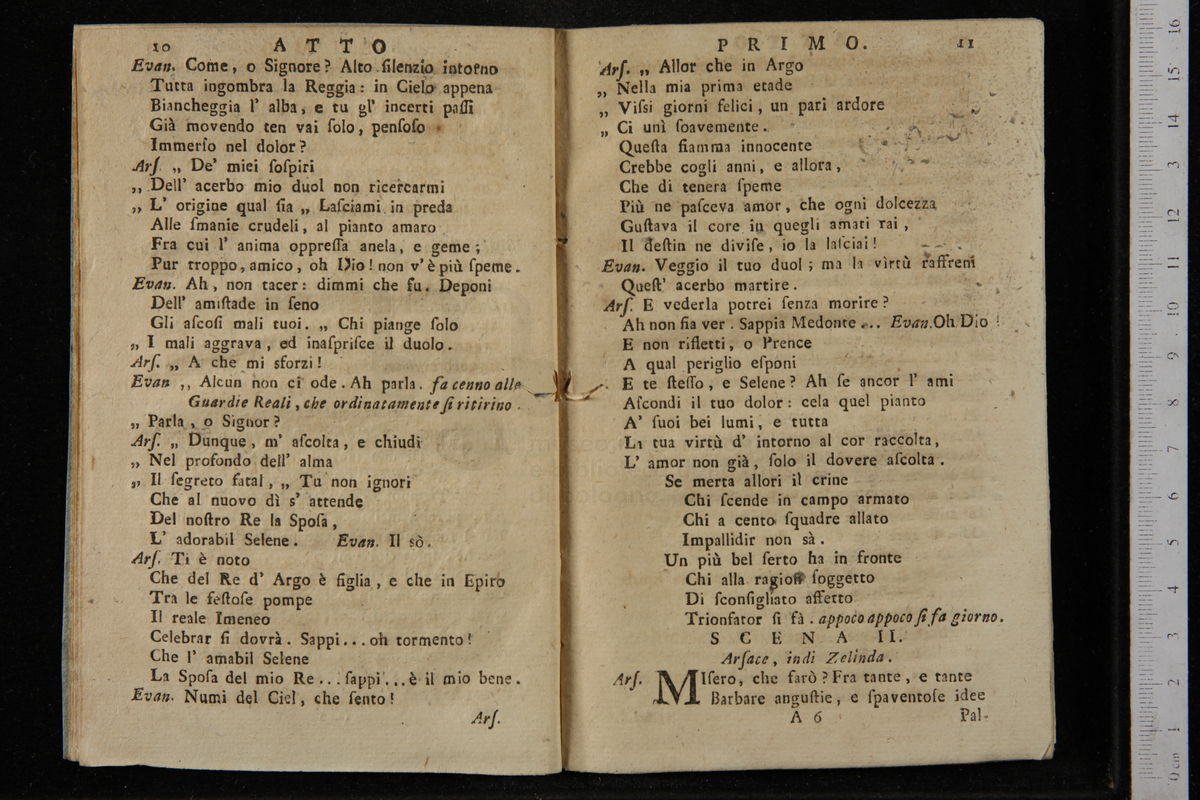 10 ATTO
Evan. Come, o Signore? Alto ſilenzio intorno
Tutta ingombra la Reggia: in Cielo appena
Biancheggia l' alba, e tu gl' incerti paſſi
Già movendo ten vai ſolo, penſoſo
Immerſo nel dolor?
Arſ. „ De' miei ſoſpiri
„ Dell' acerbo mio duol non ricercarmi
„ L' origine qual ſia „ Laſciami in preda
Alle ſmanie crudeli, al pianto amaro
Fra cui l' anima oppreſſa anela, e geme;
Pur troppo, amico, oh Dio! non v' è più ſpeme.
Evan. Ah, non tacer: dimmi che fu. Deponi
Dell' amiſtade in ſeno
Gli aſcoſi mali tuoi. „ Chi piange ſolo
„ I mali aggrava, ed inaſpriſce il duolo.
Arſ. „ A che mi sforzi!
Evan „ Alcun non ci ode. Ah parla. fa cenno alle
Guardie Reali, che ordinatamente ſi ritirino.
„ Parla, o Signor?
Arſ. „ Dunque, m' aſcolta, e chiudi
„ Nel profondo dell' alma
„ Il ſegreto fatal, „ Tu non ignori
Che al nuovo dì s' attende
Del noſtro Re la Spoſa,
L' adorabil Selene. Evan. Il sò.
Arſ. Ti è noto
Che del Re d' Argo è figlia, e che in Epiro
Tra le feſtoſe pompe
Il reale Imeneo
Celebrar ſi dovrà. Sappi... oh tormento!
Che l' amabil Selene
La Spoſa del mio Re... ſappi... è il mio bene.
Evan. Numi del Ciel, che ſento!
Arſ.
PRIMO. 11
Arſ. „ Allor che in Argo
„ Nella mia prima etade
„ Viſsi giorni felici, un pari ardore
„ Ci unì ſoavemente.
Queſta fiamma innocente
Crebbe cogli anni, e allora,
Che di tenera ſpeme
Più ne paſceva amor, che ogni dolcezza
Guſtava il core in quegli amati rai,
Il deſtin ne diviſe, io la laſciai!
Evan. Veggio il tuo duol; ma la virtù raffreni
Queſt' acerbo martire.
Arſ. E vederla potrei ſenza morire?
Ah non ſia ver. Sappia Medonte... Evan. Oh Dio!
E non rifletti, o Prence
A qual periglio eſponi
E te ſteſſo, e Selene? Ah ſe ancor l' ami
Aſcondi il tuo dolor: cela quel pianto
A' ſuoi bei lumi, e tutta
La tua virtù d' intorno al cor raccolta,
L' amor non già, ſolo il dovere aſcolta.
Se merta allori il crine
Chi ſcende in campo armato
Chi a cento ſquadre allato
Impallidir non sà.
Un più bel ſerto ha in fronte
Chi alla ragion ſoggetto
Di ſconſigliato affetto
Trionfator ſi fà. appoco appoco ſi fa giorno.
SCENA II.
Arſace, indi Zelinda.
Arſ. MIſero, che farò? Fra tante, e tante
Barbare anguſtie, e ſpaventoſe idee
A 6 Pal-